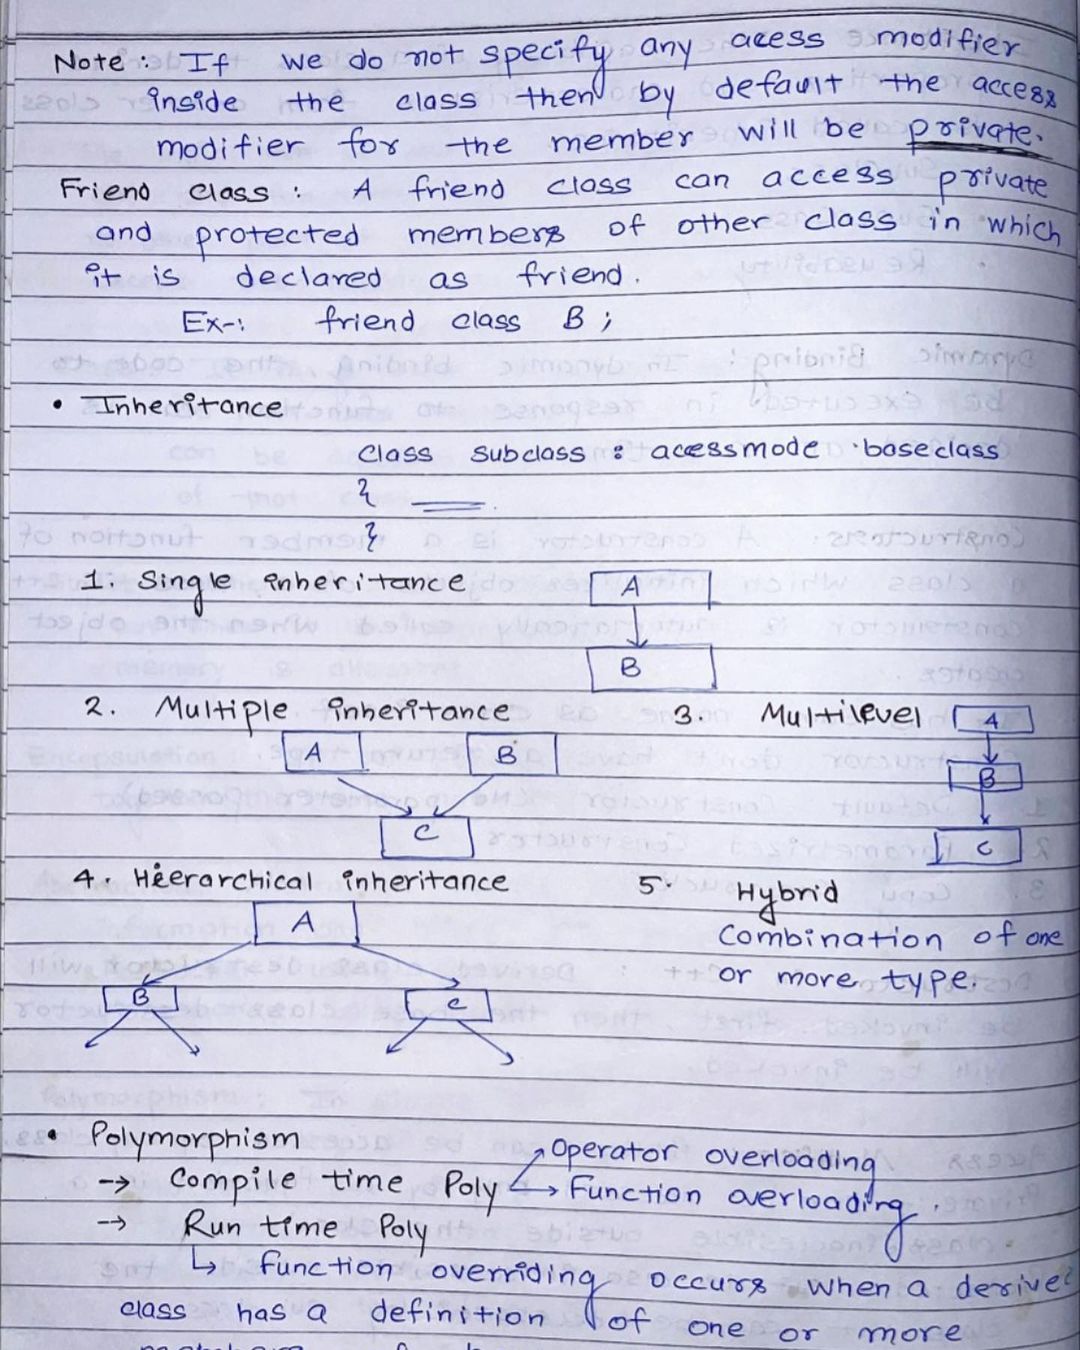 Note : If we do not specify any acess modifier
inside the class then by default the access
modifier for the member will be private.
Friend class : A friend class can access private
and protected members of other class in which
it is declared as friend.
Ex-: friend class B ;
• Inheritance
class subclass : acessmode baseclass
{
}
1. Single inheritance
A
B
2. Multiple inheritance
3. Multilevel
A
B
C
A
B
C
4. Hierarchical inheritance
5. Hybrid
Combination of one
or more type.
A
B
C
• Polymorphism
→ Compile time Poly
Operator overloading
Function overloading.
→ Run time Poly
↳ function overriding occurs when a derive
class has a definition of one or more